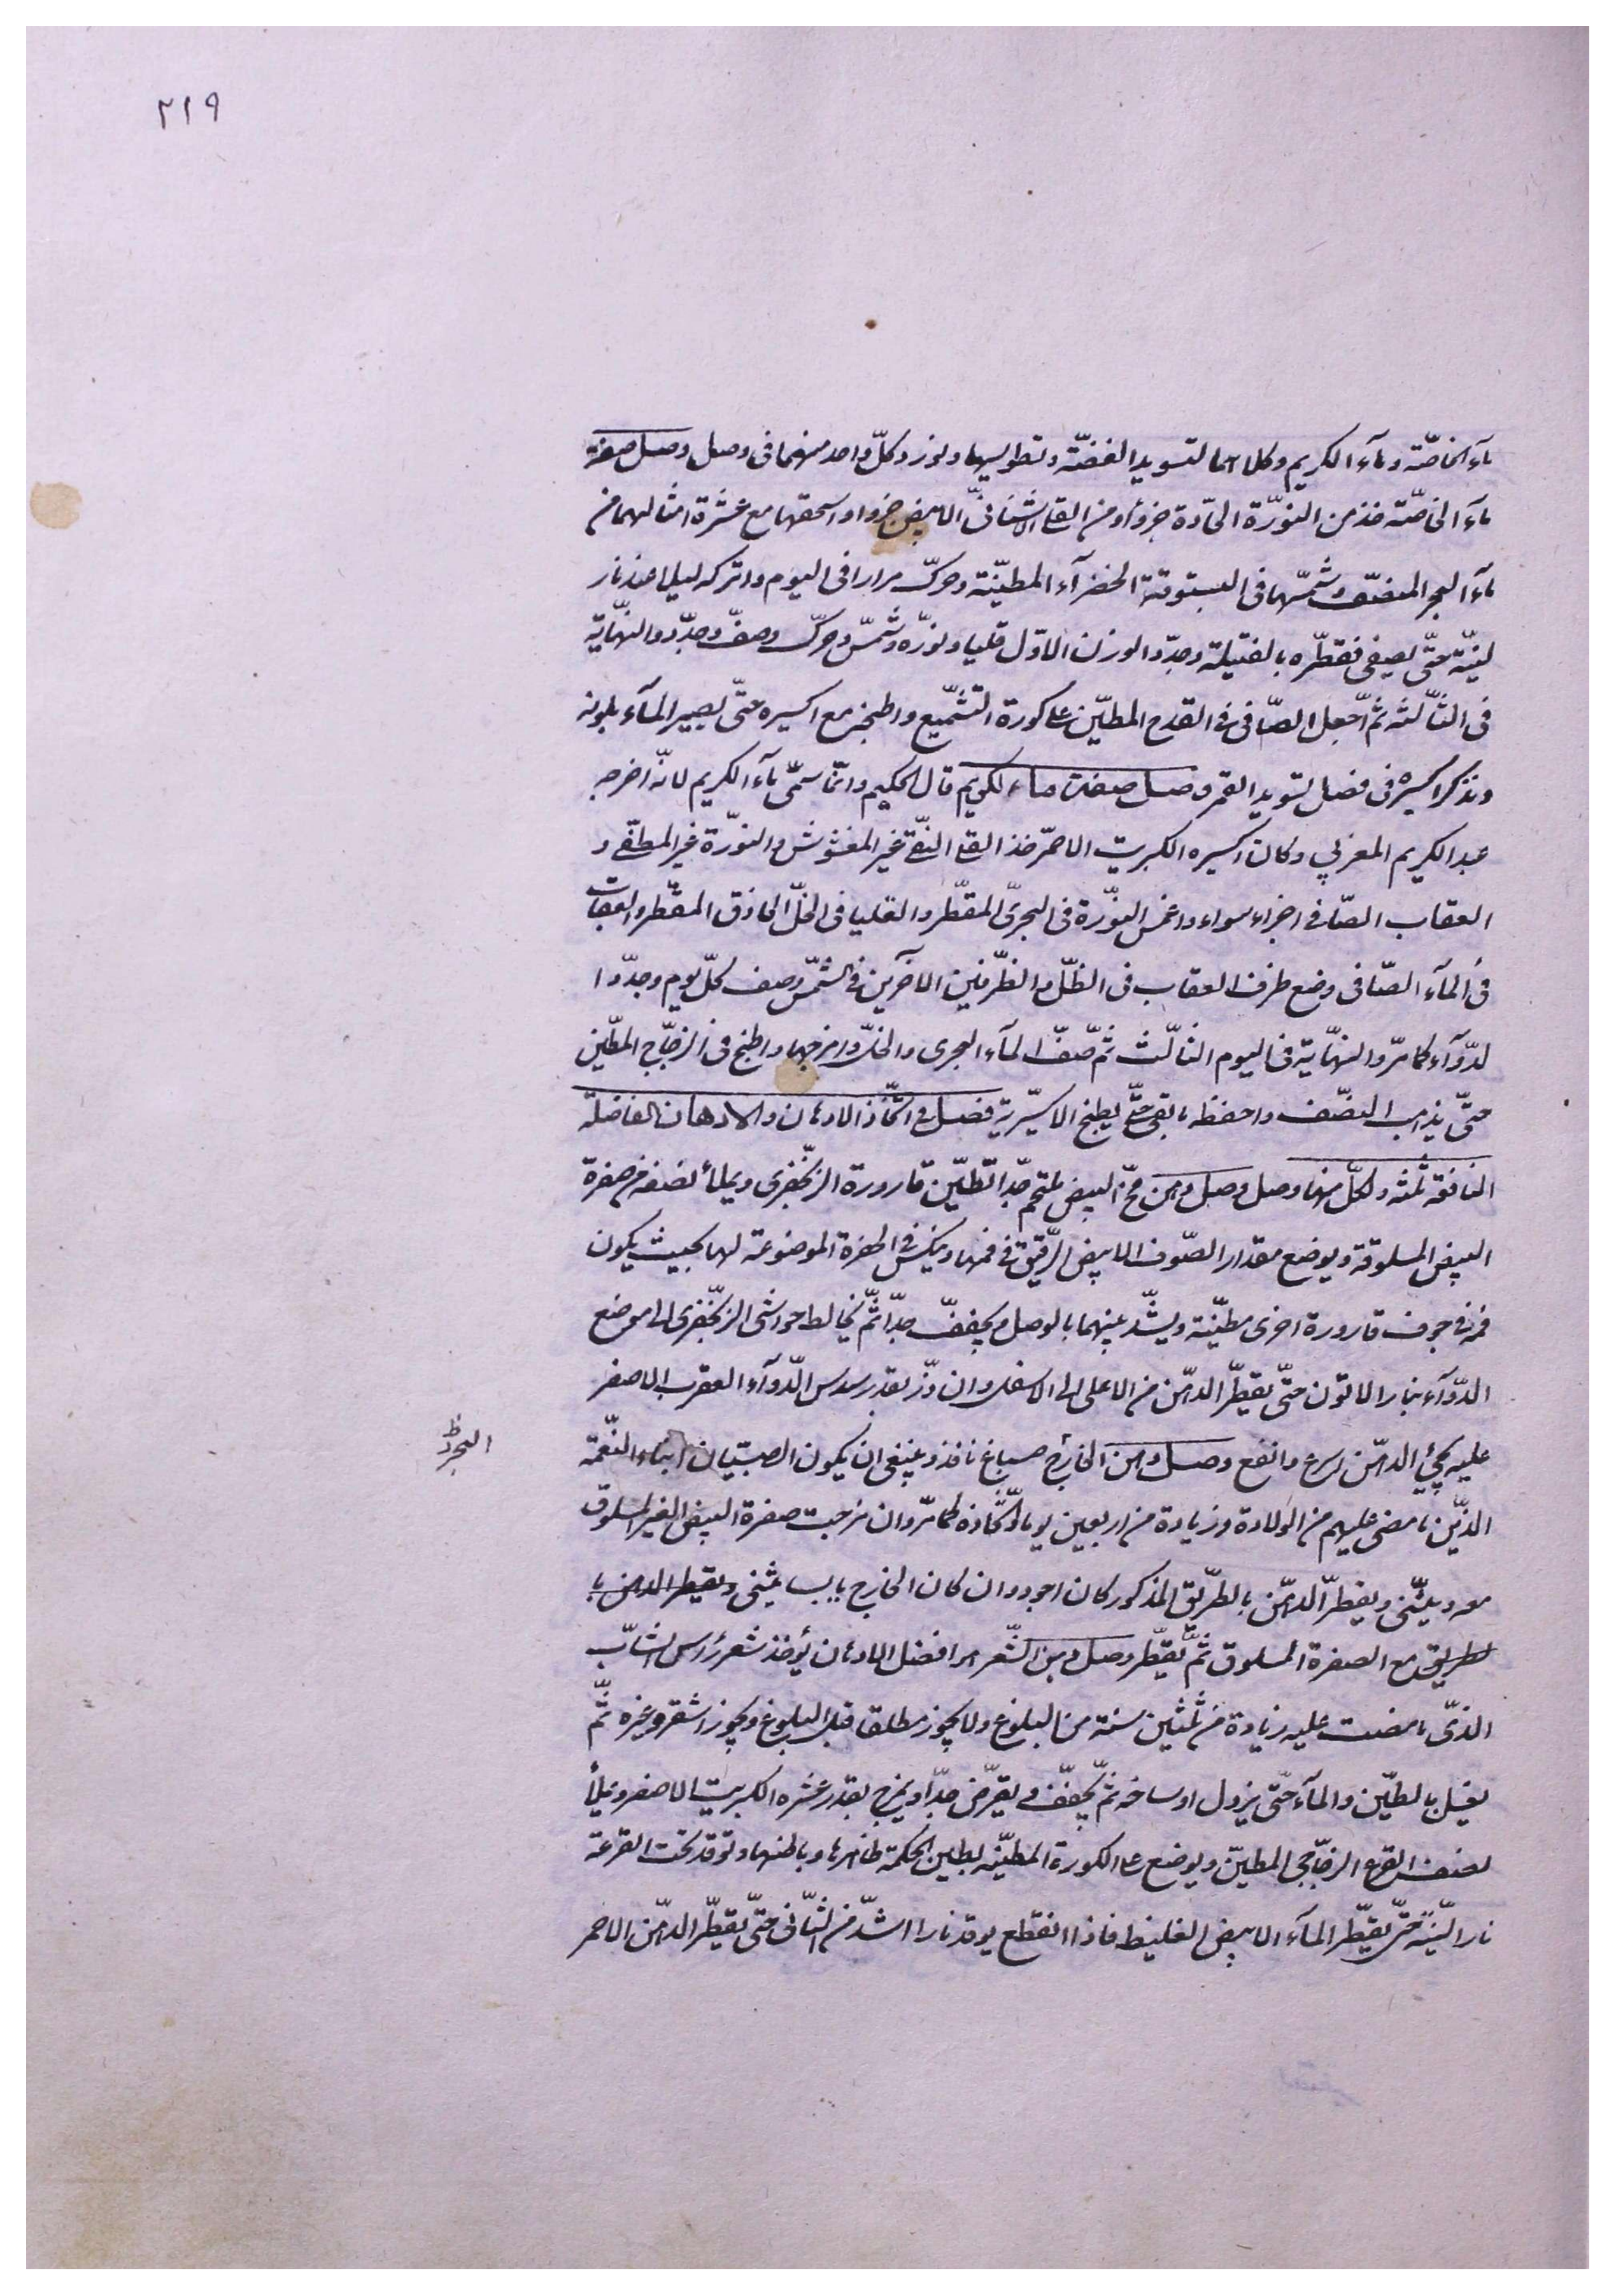 ٢١٩
ماء الخاصّة وماء الكريم وكلاهما لتسويد الفضّة وتطويسها ونورد كلّ واحد منهما فى وصل وصل صفة
ماء الخاصّة خذ من النورّة الحادّة جزوأ ومن القلى الاشنانىّ الابيض جزوا واسحقها مع عشرة امثالهما من
ماء البحر المصفّ وشمّسها فى البستوقة الخضراء المطيّنة وحرّك مرارا فى اليوم واتركه ليلا عند نار
لينّة حتّى يصفى فقطّره بالفتيلة وجدّد الوزن الاوّل قليا ونورّه وشمّس وحرّك وصفّ وجدّد والنهّاية
فى الثّالثة ثمّ اجعل الصّافى فى القدح المطيّن على كورة التشميع واطبخ مع اكسيره حتّى يصير الماء بلونه
ونذكر اكسيره فى فصل تسويد القمر وصل صفت ماء الكريم قال الحكيم وانّما سمّى ماء الكريم لانّه اخرجه
عبد الكريم المغربي وكان اكسيره الكبريت الاحمر خذ القلى النقّى غير المغشوش والنورّة غير المطفّى و
العقاب الصّافى اجزاء سواء واغمس النورّة فى البحرىّ المقطّر والقليا فى الخلّ الحاذق المقطّر والعقاب
فى الماء الصّافى وضع ظرف العقاب فى الظلّ والظّرفين الآخرين فى الشّمس وصف كلّ يوم وجدّد ا
لدوّاء كما مرّ والنهّاية فى اليوم الثّالث ثمّ صفّ الماء البحرى والخلّ وامزجها واطبخ فى الزّجاج المطيّن
حتّى يذهب النصّف واحفظه ما بقى حتّى يطبخ الاكسيّرية فصل فى اتّخاذ الادهان والادهان الفاضلة
النافعة ثلثه ولكلّ منها وصل وصل دهن محّ البيض ثم جدّا تطيّن قارورة الزنخفرى ويملأ نصفه من صفرة
البيض المسلوقة ويوضع مقدار الصّوف الابيض الرّقيق فى فمها وينكس فى الحفرة الموضوعة لها بحيث يكون
فمه فى جوف قارورة اخرى مطيّنة ويشّد بينهما بالوصل ويجفّف جدّا ثمّ يخالط حواشى الزنخفرى الى موضع
الدوّاء بنار الاتون حتّى يقطّر الدهّن من الاعلى الى الاسفل وان ذرّ بقدر سدس الدوّاء العقرب الاصفر
عليه يجئ الدهّن اسرع وانفع وصل دهن الخارج صباغ نافذ وينبغى ان يكون الصبيّان ابناء النعّمة
البحر ظ
الذّين ما مضى عليهم من الولادة زيادة من اربعين يوما واتّخاذه كما مرّ وان مزجت صفرة البيض الغير المسلوق
معه ويثنّى ويقطر الدهّن بالطرّيق المذكور كان اجود وان كان الخارج يابسا يثنى ويقطر الدهن با
لطريق مع الصفرة المسلوق ثمّ يقطّر وصل دهن الشّعر هو افضل الادهان يؤخذ شعر رأس الشابّ
الذّى ما مضت عليه زيادة من ثلثين سنة من البلوغ ولا يجوز مطلقا قبل البلوغ ويجوز اشقر وغيره ثمّ
يغسل بالطيّن والماء حتّى يزول اوساخه ثمّ يجفّف ويقرّض جدّا ويمزج بقدر عشره الكبريت الاصفر ويملأ
نصف القرع الزّجاجى المطيّن ويوضع على الكورة المطيّنه بطين الحكمة ظاهرها وباطنها وتوقد تحت القرعة
نارا ليّنة حتّى يقطّر الماء الابيض الغليظ فاذا انقطع يوقد نارا اشدّ من الثّانى حتّى يقطّر الدهّن الاحمر